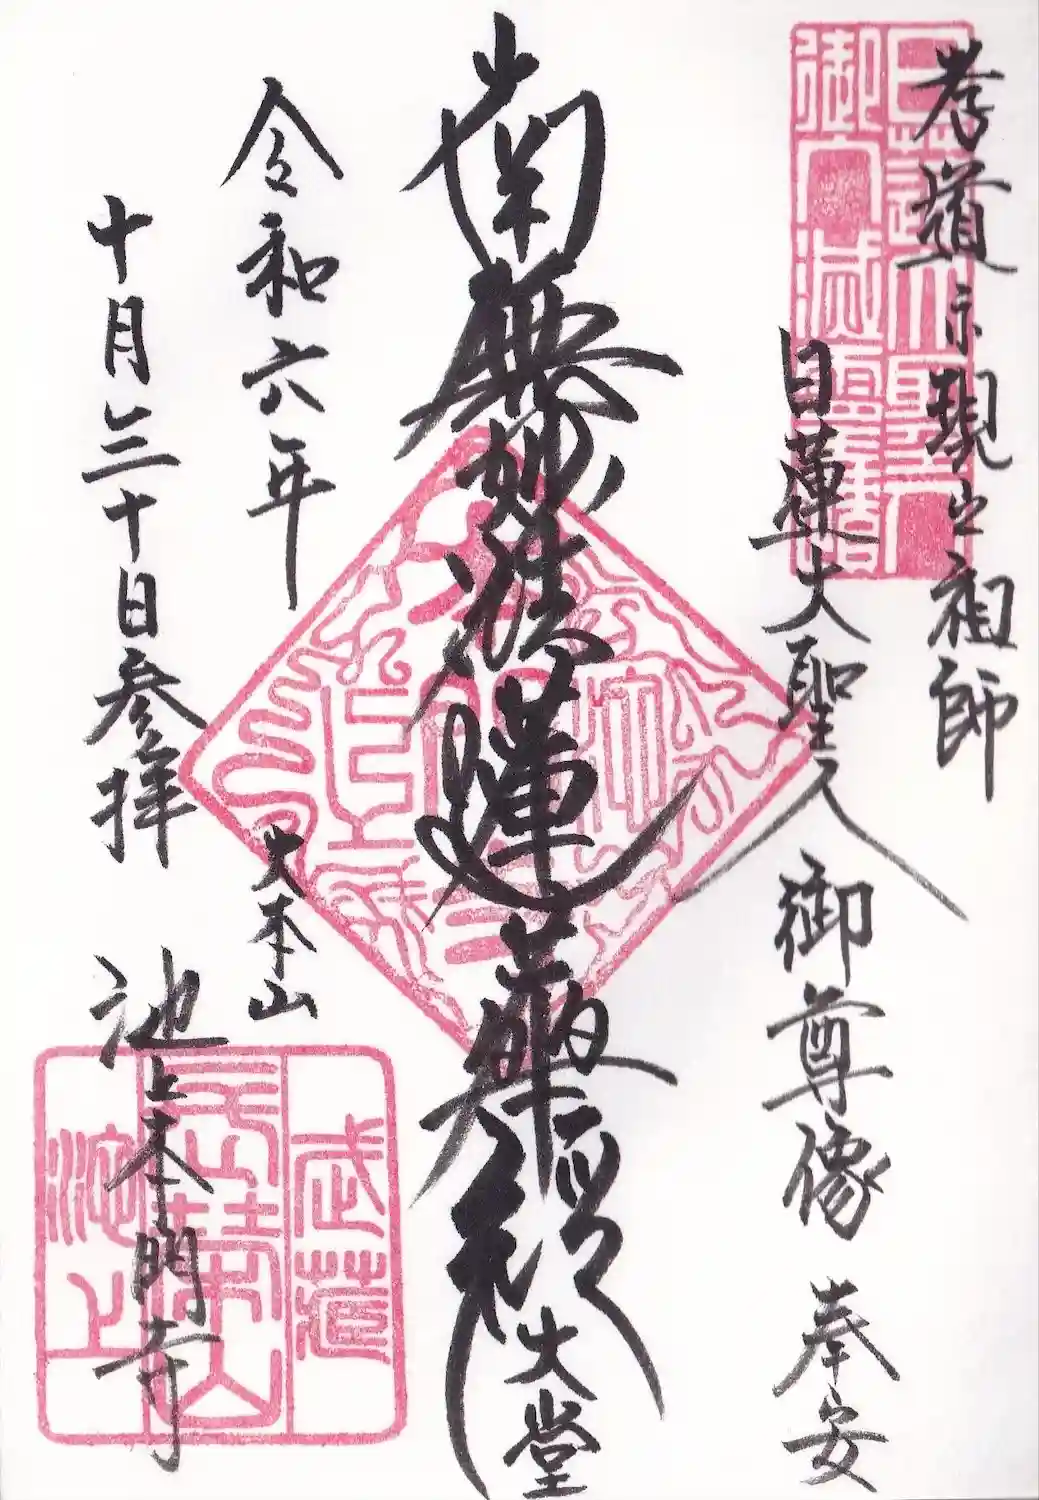 孝道示現之祖師
日蓮大聖人御尊像 奉安
南無妙法蓮華経
大堂
令和六年
大本山
十月三十日参拝
池上本門寺
武蔵
長榮山
池上